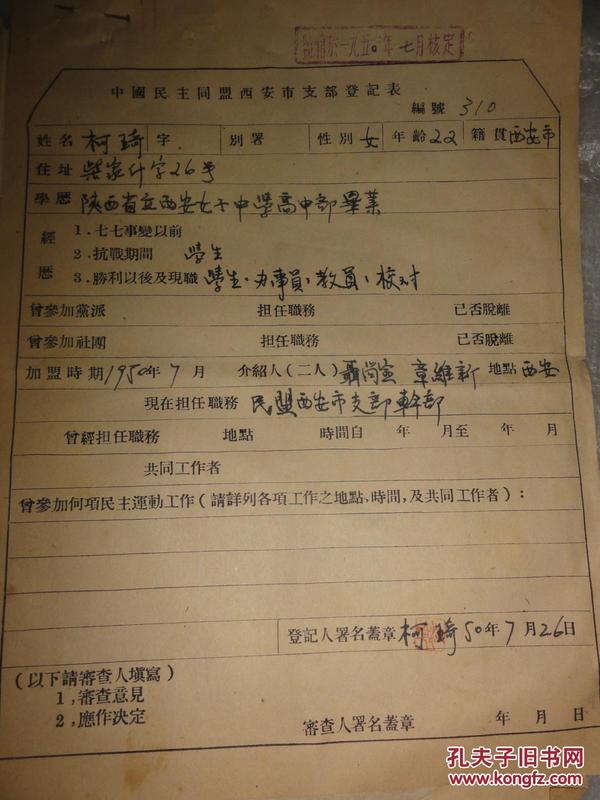 盟籍於一九五〇年七月核定
中國民主同盟西安市支部登記表
編號 310
姓名 柯琦 字 別署 性別 女 年齡 22 籍貫 西安市
住址 柴家什字26号
學歷 陝西省立西安女子中學高中部畢業
經歷 1.七七事變以前
2.抗戰期間 學生
3.勝利以後及現職 學生、办事員、教員、校对
曾參加黨派 担任職務 已否脫離
曾參加社團 担任職務 已否脫離
加盟時期 1950年7月 介紹人(二人) 聶尚 章維新 地點 西安
現在担任職務 民盟西安市支部幹部
曾經担任職務 地點 時間自 年 月至 年 月
共同工作者
曾參加何項民主運動工作(請詳列各項工作之地點、時間,及共同工作者):
登記人署名蓋章 柯琦 50年7月26日
(以下請審查人塡寫)
1,審查意見
2,應作決定
審查人署名蓋章 年 月 日
孔夫子旧书网
www.kongfz.com